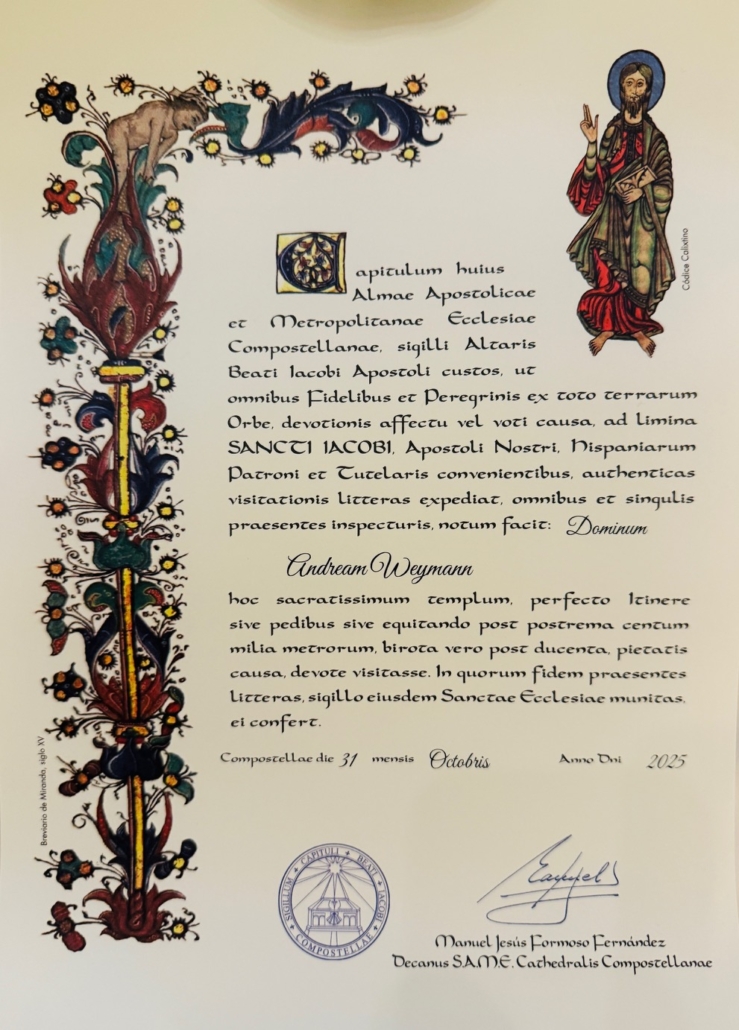 Códice Calixtino
Capitulum huius
Almae Apostolicae
et Metropolitanae Ecclesiae
Compostellanae, sigilli Altaris
Beati Iacobi Apostoli custos, ut
omnibus Fidelibus et Peregrinis ex toto terrarum
Orbe, devotionis affectu vel voti causa, ad limina
SANCTI IACOBI, Apostoli Nostri, Hispaniarum
Patroni et Tutelaris convenientibus, authenticas
visitationis litteras expediat, omnibus et singulis
praesentes inspecturis, notum facit: Dominum
Andream Weymann
hoc sacratissimum templum, perfecto Itinere
sive pedibus sive equitando post postrema centum
milia metrorum, birota vero post ducenta, pietatis
causa, devote visitasse. In quorum fidem praesentes
litteras, sigillo eiusdem Sanctae Ecclesiae munitas,
ei confert.
Compostellae die 31 mensis Octobris Anno Dni 2025
Breviario de Miranda, siglo XV
SIGILLUM CAPITULI BEATI IACOBI COMPOSTELLAE
Manuel Jesús Formoso Fernández
Decanus S.A.M.E. Cathedralis Compostellanae